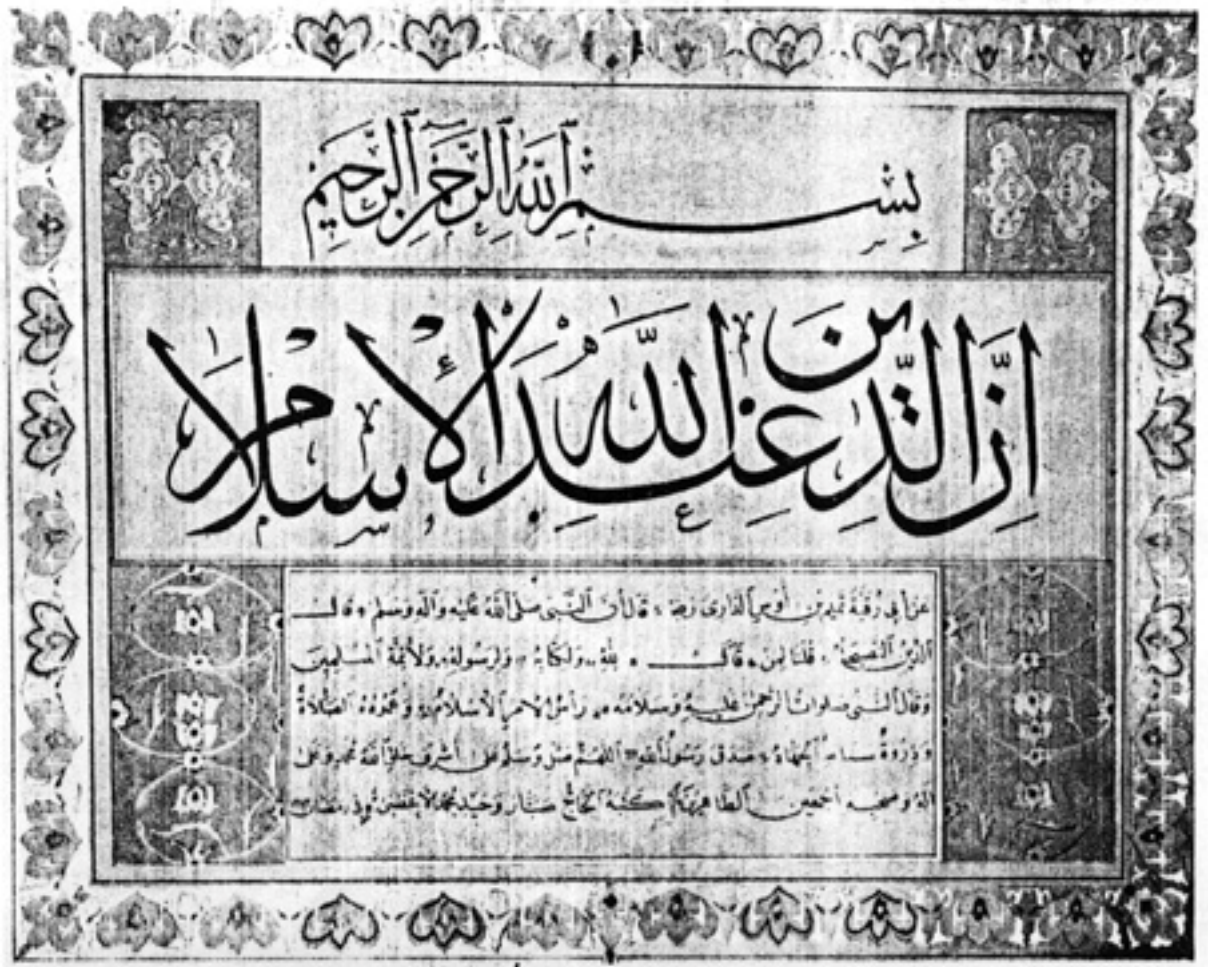 بِسْمِ ٱللَّهِ ٱلرَّحْمٰنِ ٱلرَّحِيمِ
إِنَّ الدِّينَ عِنْدَ اللَّهِ الْإِسْلَامُ
عن أبي رقية تميم بن أوس الدارى رضه قال أن النبى صلى الله عليه وآله وسلم قال
الدين النصيحة قلنا لمن قال لله ولكتابه ولرسوله ولأئمة المسلمين
وقال النبى صلوات الرحمن عليه وسلامه رأس الامر الاسلام وعموده الصلاة
وذروة سنامه الجهاد صدق رسول الله اللهم صل وسلم على أشرف خلق الله محمد وعلى
آله وصحبه أجمعين الطاهرين كتبه الحاج